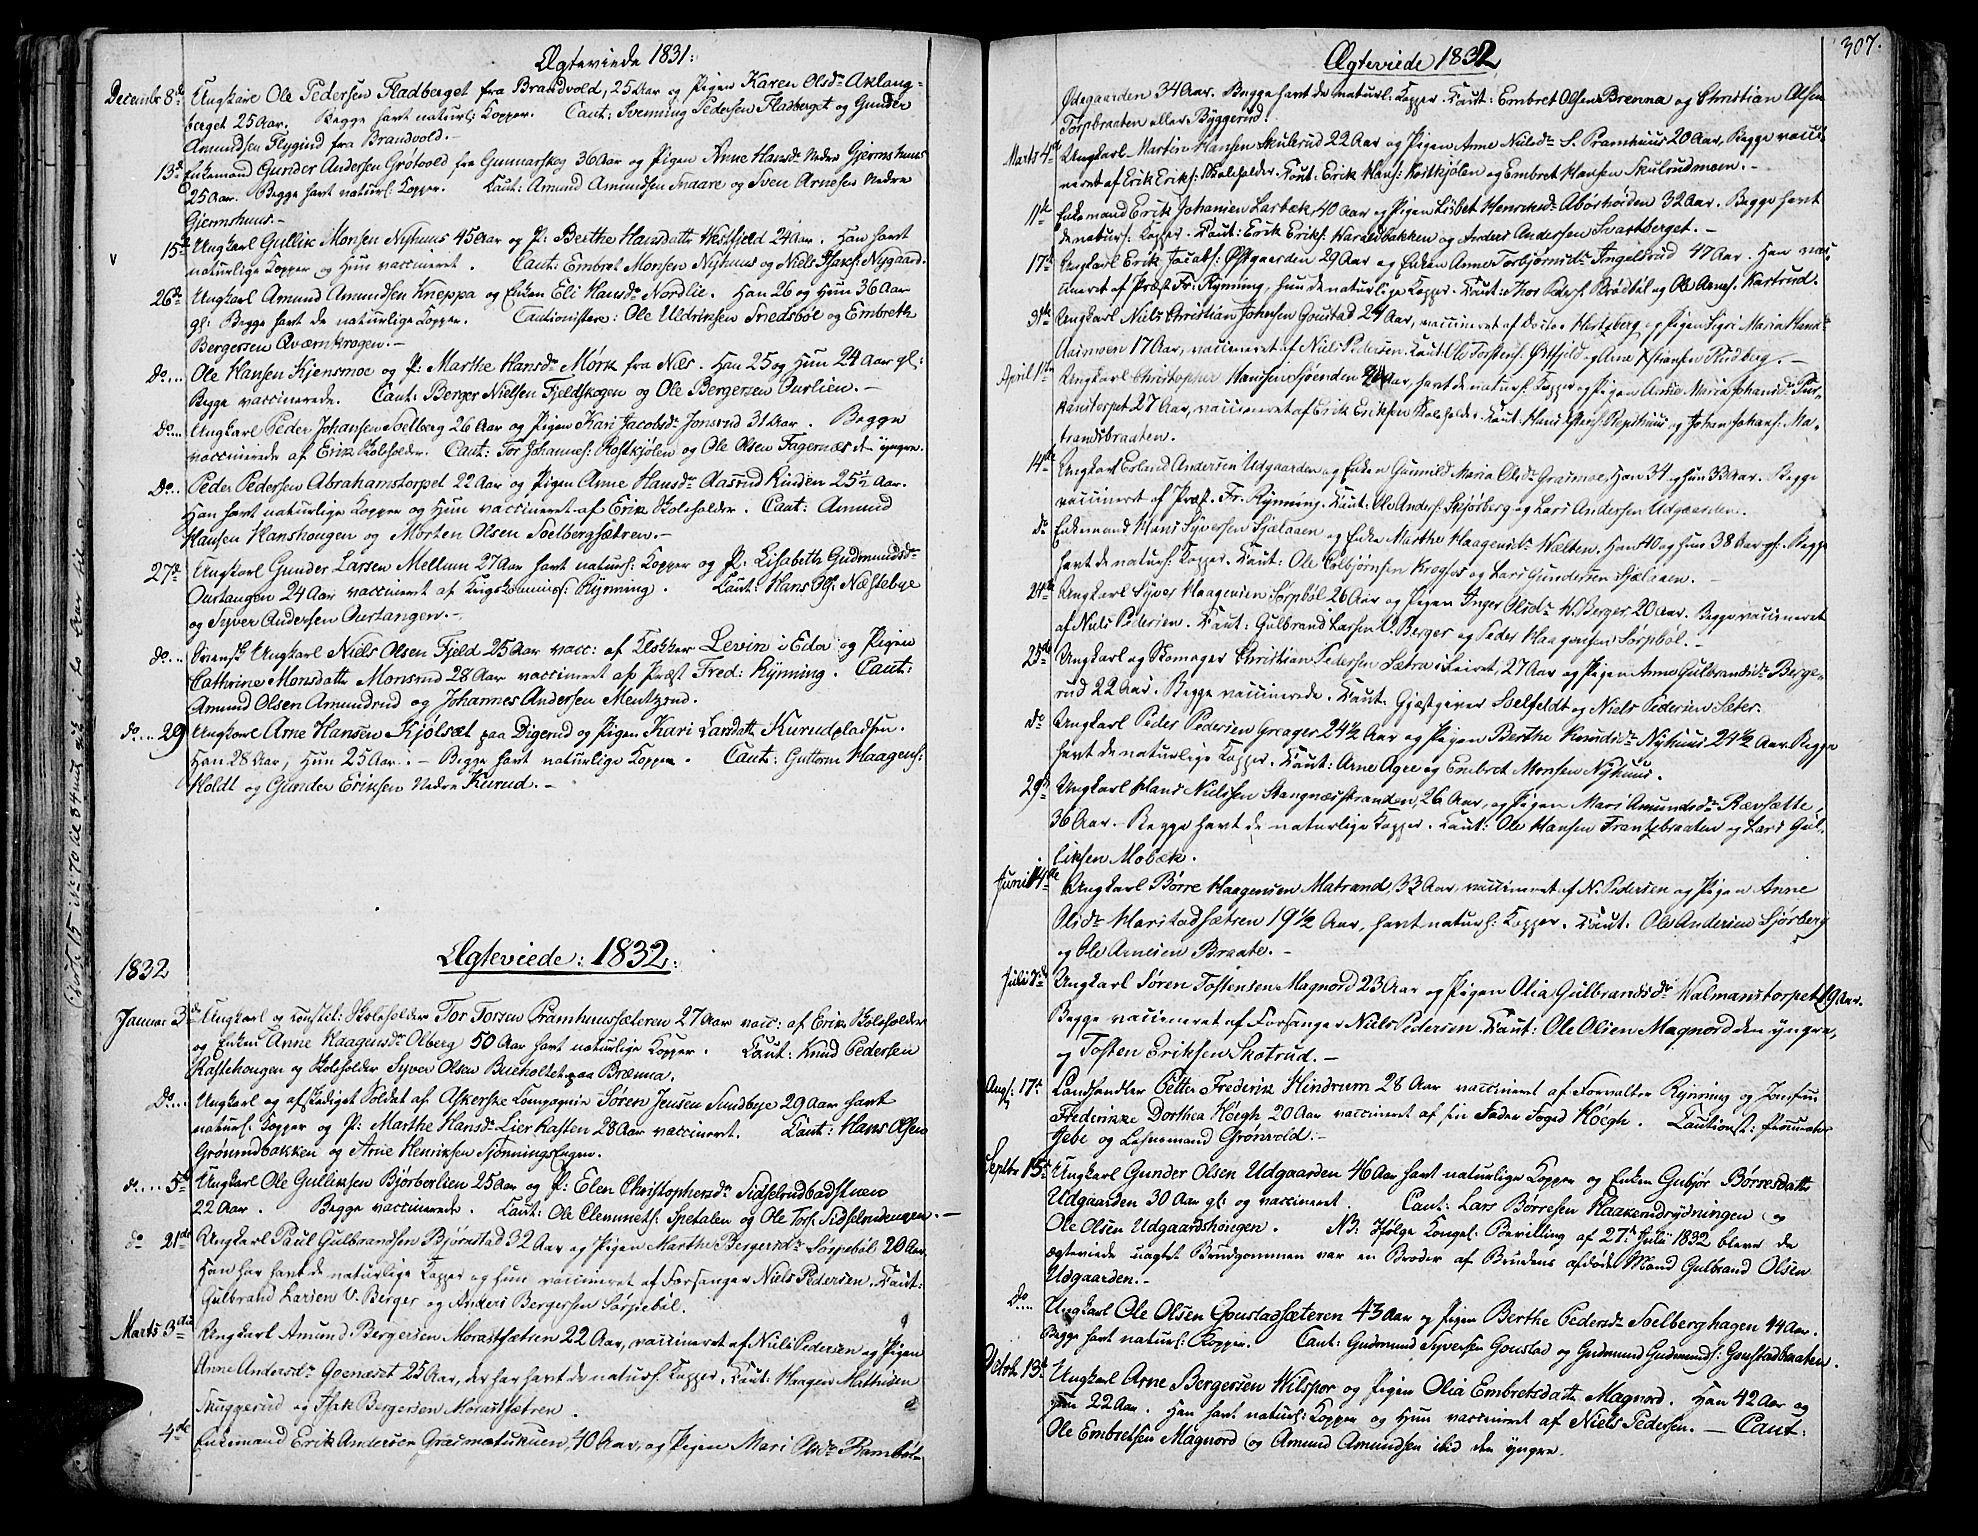 Ægteviede 1831:
Decembr 8de Ungkarl Ole Pedersen Fladberget fra Brandvold, 25 Aar og Pigen Karen Olsdr Aklang-
berget 25 Aar. Begge havt naturl: Kopper. Caut: Svenning Pedersen Fladberget og Gunder
Amundsen Flygind fra Brandvold.-
13de Enkemand Gunder Andersen Grøtvold fra Gunnarskog 36 Aar og Pigen Anne Hansdr Nedre Gjermshuus
25 Aar. Begge havt naturl. Kopper. Caut: Amund Amundsen Snaare og Sven Arnesen Nedre
Gjermshuus.-
15de Ungkarl Gullik Monsen Nyhuus 45 Aar og P: Berthe Hansdatter Westfjeld 24 Aar. Han havt
v naturlige Kopper og Hun vaccineret. Caut: Embret Monsen Nyhuus og Niels Isaks: Nygaard.
26de Ungkarl Amund Amundsen Kneppa og Enken Eli Hansdr Nordlie. Han 26 og Hun 36 Aar
gl: Begge havt de naturlige Kopper. Cautionistere: Ole Uldriksen Snedsböl og Embreth
Bergersen Qværnkrogen.-
Do... Ole Hansen Kjensmoe og P. Marthe Hansdr Mörk fra Næs. Han 25 og Hun 24 Aar gl:
Begge vaccinerede. Caut: Berger Nielsen Fjeldskogen og Ole Bergersen Ourlien.-
Do... Ungkarl Peder Johansen Soelberg 26 Aar og Pigen Kari Jacobsdr Jonsrud 31 Aar. Begge
vaccinerede af Erik Skoleholder. Caut: Tor Johannes: Kostkjølen og Ole Olsen Fagernæs de yngre.
Do... Peder Pedersen Abrahamstorpet 22 Aar og Pigen Anne Hansdr Aasrud Rinden 25½ Aar.
Han havt naturlige Kopper og Hun vaccineret af Erik Skoleholder. Caut: Amund
Hansen Hanshougen og Morten Olsen Soelbergsætren.-
27de Ungkarl Gunder Larsen Mellum 27 Aar havt naturl: Kopper og P. Lisabeth Gudmundsdr
Ourtangen 24 Aar vaccineret af Krigskommiss: Rynning. Caut: Hans Ols: Næstebye
og Syver Andersen Ourtangen.-
do... Svensk Ungkarl Niels Olsen Fjeld 25 Aar vacc: af Klokker Levin i Eda og Pigen
Cathrine Monsdatter Monsrud 28 Aar vaccineret af Præst Fred: Rynning. Caut:
Amund Olsen Amundrud og Johannes Andersen Mentzrud.
do... 29 Ungkarl Arne Hansen Kjølsæt paa Digerud og Pigen Kari Larsdatter Kurudpladsen.
Han 28 Aar, Hun 25 Aar.- Begge havt naturlige Kopper. Caut: Guttorm Haagens:
Holdt og Gunder Eriksen Nedre Kurud.-
Ægteviede: 1832:
1832
Januar 3de Ungkarl og constit: Skoleholder Tor Torsen Pramhuussæteren 27 Aar vacc: af Erik Skoleholder
og Enken Anne Haagensdr Olberg 50 Aar havt naturlige Kopper. Caut: Knud Pedersen
Rastehougen og Skoleholder Syver Olsen Bueholtet paa Brænna.
Do... Ungkarl og afskediget Soldat af Askerske Compagnie Sören Jensen Sundbye 29 Aar havt
naturl. Kopper og P: Marthe Hansdr Lier Kasten 28 Aar vaccineret. Caut: Hans Olsen
Grønnudbakken og Arne Henriksen SjønningsEngen.
d..... 5te Ungkarl Ole Gulliksen Bjørberlien 25 Aar og P: Elen Christophersdr Sidselrudbadstuen
22 Aar. Begge vaccinerede. Caut: Ole Clemmets: Spetalen og Ole Tors. Sidselrudengen.-
do 21de Ungkarl Paul Gulbrandsen Bjørnstad 32 Aar og Pigen Marthe Bergersdr Sørpeböl 20 Aar.
Han har havt de naturlige Kopper og hun vaccineret af Forsanger Niels Pedersen. Kaut:
Gulbrand Larsen V. Berger og Anders Bergersen Sörpeböl.
Marts 3die Ungkarl Amund Bergersen Morastsætren 22 Aar, vaccineret af Niels Pedersen og Pigen
Anne Andersdr Goenæset 25 Aar, der har havt de naturl. Kopper. Kaut: Haagen Mathisen
Skuggerud og Isak Bergersen Morastsætren.
4de Enkemand Erik Andersen Græsmotukuen, 40 Aar, og Pigen Mari Andr Ramböl-
Ægteviede 1832
307.
Ødegaarden 34 Aar. Begge havt de naturl: Kopper. Kaut: Embret Olsen Brenna og Christian Olsen
Torpbraaten eller Byggerud.
Marts 4de Ungkarl Martin Hansen Skulerud 22 Aar og Pigen Anne Nilsdr S. Pramhuus 20 Aar, Begge vacci-
neret af Erik Eriks: Skoleholder. Kaut: Erik Hans: Kostkjölen og Embret Hansen Skulrudmoen.-
11te Enkemand Erik Johansen Larbæk, 40 Aar og Pigen Lisbet Henriksdr Abörhöiden 32 Aar. Begge havt
de naturl: Kopper. Kaut: Erik Eriks: Haraldbakken og Anders Andersen Svartberget.-
17de Ungkarl Erik Jacobs: Østgaarden 29 Aar og Enken Anne Torbjørnsdr Ingelsrud 47 Aar. Han vac-
cineret af Præst Fr: Rynning, hun de naturlige Kopper. Kaut: Thor Peders. Brödböl og Ole Arnes. Kartrud.
31te Ungkarl Niels Christian Johnsen Goustad 24 Aar, vaccineret af Doctor Hertzberg og Pigen Sigri Maria Hansdr
Aasmoen 17 Aar, vaccineret af Niels Pedersen. Kaut: Ole Torstens: Østfjeld og Arne Kristiansen Rudberg.-
April 1te Ungkarl Christopher Hansen Sjøenden Aar, havt de naturl. Kopper og Pigen Anne Maria Johansdr Tur-
kanstorpet 27 Aar, vaccineret af Erik Eriksen Skoleholder. Kaut: Hans Ols: og Johan Johans: Ma-
trandsbraaten.
14de Ungkarl Erland Andersen Udgaarden og Enken Gunnild Maria Olsdr Grasmoe, Han 34 og hun 33 Aar. Begge
vaccineret af Præst. Fr. Rynning. Kaut: Ole Anders: Skjørberg og Lars Andersen Udgaarden.
do Enkemand Hans Syversen Sjælaaen og Enke Marthe Haagensdr Welten. Han 40 og hun 38 Aar gl. Begge
havt de naturl. Kopper. Kaut: Ole Colbjørnsen Krogfos og Lars Gundersen Sjælaaen.-
24de Ungkarl Syver Haagensen Sørpböl 26 Aar og Pigen Inger Olsdr N. Berger 20 Aar. Begge vaccineret
af Niels Pedersen. Kaut: Gulbrand Larsen V. Berger og Peder Haagensen Sörpböl.-
25de Ungkarl og Skomager Christian Pedersen Sætra i Leiret, 27 Aar og Pigen Anne Gulbrandsdr Berge-
rud 22 Aar. Begge vaccinerede. Kaut. Gjæstgiver Solfeldt og Niels Pedersen Sæter.
do Ungkarl Peder Pedersen Greager 24½ Aar og Pigen Berthe Knudsdr Nyhuus 24½ Aar. Begge
havt de naturlige Kopper. Kaut: Arne Agee og Embret Monsen Nyhuus.
29de Ungkarl Hans Nielsen Stangnæsstranden, 26 Aar, og Pigen Mari Amundsdr Rævsætte,
36 Aar.- Begge havt de naturlige Kopper. Kaut: Ole Hansen Frantzbraaten og Lars Gul-
liksen Mobæk.
Juni 14de Ungkarl Børre Haagensen Matrand, 33 Aar, vaccineret af N. Pedersen og Pigen Anne
Olsdr Maristadsætren 19½ Aar, havt naturl: Kopper. Kaut. Ole Andersen Sjørberg
og Ole Arnesen Braate.-
Juli 3de Ungkarl Søren Tostensen Magnord 23 Aar og Pigen Olia Gulbrandsdr Walmanstorpet 19 Aar.
Begge vaccineret af Forsanger Niels Pedersen. Kaut: Ole Olsen Magnord den yngre,
og Tosten Eriksen Skotrud.-
Aug: 17de Landhandler Petter Frederik Hindrum 28 Aar vaccineret af Forvalter Rynning og Jomfru
Frederikke Dorthea Høegh 20 Aar vaccineret af sin Fader Foged Høegh. Cautionst: Procurator
Jebe og Lehnsmand Grønvold.-
Septbr 15de Ungkarl Gunder Olsen Udgaarden 46 Aar havt naturlige Kopper og Enken Gubjør Børresdatter
Udgaarden 30 Aar gl. og vaccineret. Caut: Lars Børresen Haakenrydningen og
Ole Olsen Udgaardshougen. NB: Ifølge Kongel: Bevilling af 27de Julii 1832 bleve de
ægteviede uagtet Brudgommen var en Broder af Brudens afdøde Mand Gulbrand Olsen
Udgaarden.-
Do... Ungkarl Ole Olsen Goustadsæteren 43 Aar og Pigen Berthe Pedersdr Soelberghagen 44 Aar.
Begge havt naturl: Kopper. Caut: Gudmund Syversen Goustad og Gudmund Gudmunds: Goustadbraaten.
Octob. 13de Ungkarl Arne Bergersen Wilspor og Pigen Olia Embretsdatter Magnord. Han 42 Aar og
Hun 22 Aar. Han havt naturl: Kopper og Hun vaccineret af Niels Pedersen.- Caut:
Ole Embretsen Magnord og Amund Amundsen ibid den yngre.